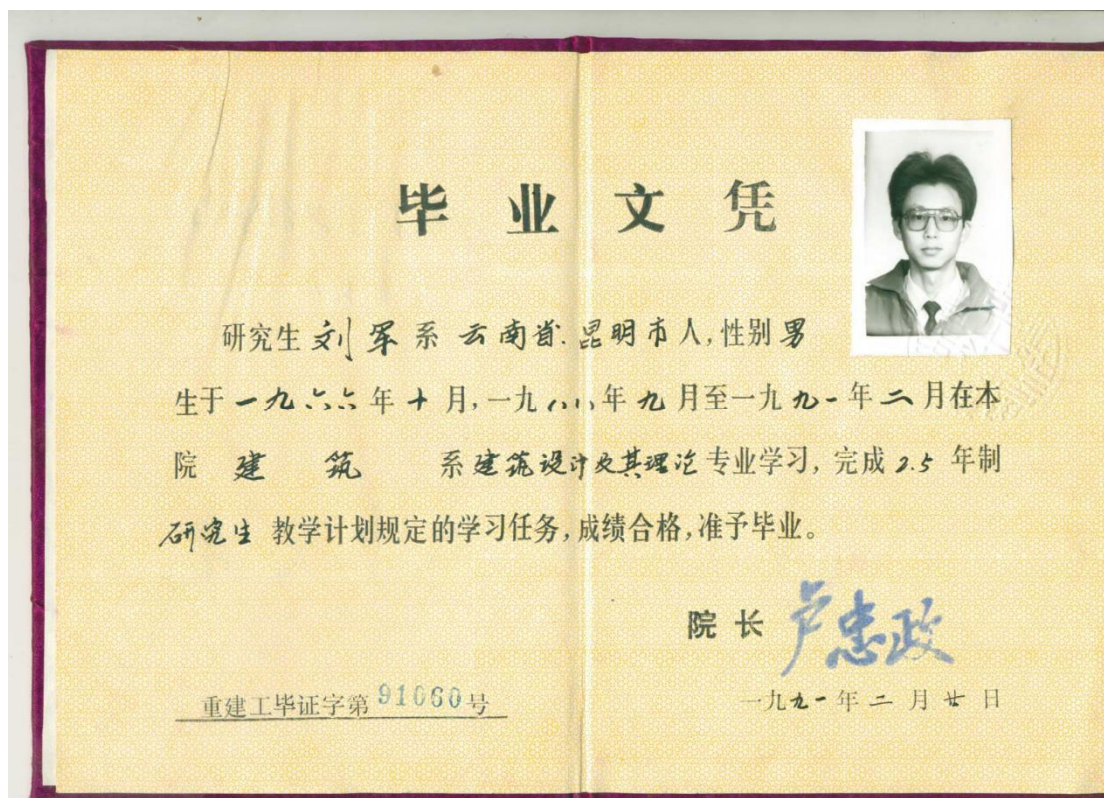 毕业文凭
研究生刘军系云南省.昆明市人,性别男
生于一九六六年十月,一九八八年九月至一九九一年二月在本
院建筑系建筑设计及其理论专业学习,完成2.5年制
研究生教学计划规定的学习任务,成绩合格,准予毕业。
院长 卢忠政
重建工毕证字第91060号
一九九一年二月廿日